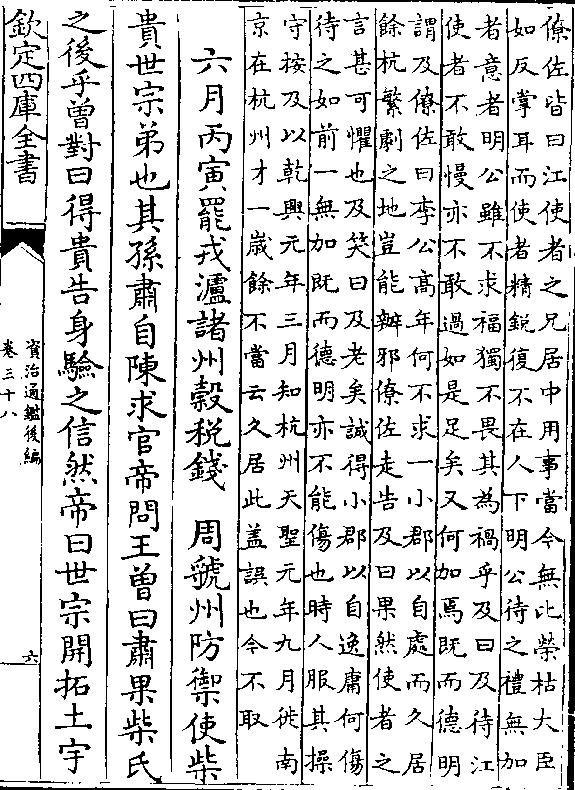 僚佐皆曰江使者之兄居中用事當今無比榮枯大臣
如反掌耳而使者精銳復不在人下明公待之禮無加
者意者明公雖不求福獨不畏其為禍乎及曰及待江
使者不敢慢亦不敢過如是足矣又何加焉既而德明
謂及僚佐曰李公髙年何不求一小郡以自處而久居
餘杭繁劇之地豈能辦邪僚佐走告及曰果然使者之
言甚可懼也及笑曰及老矣誠得小郡以自逸庸何傷
待之如前一無加既而德明亦不能傷也時人服其操
守按及以乾興元年三月知杭州天聖元年九月徙南
京在杭州才一歲餘不當云久居此盖誤也今不取
六月丙寅罷戎瀘諸州穀稅錢　周虢州防禦使柴
貴世宗弟也其孫肅自陳求官帝問王曾曰肅果柴氏
之後乎曾對曰得貴告身驗之信然帝曰世宗開拓土宇
欽定四庫全書
資治通鑑後編
卷三十八
六